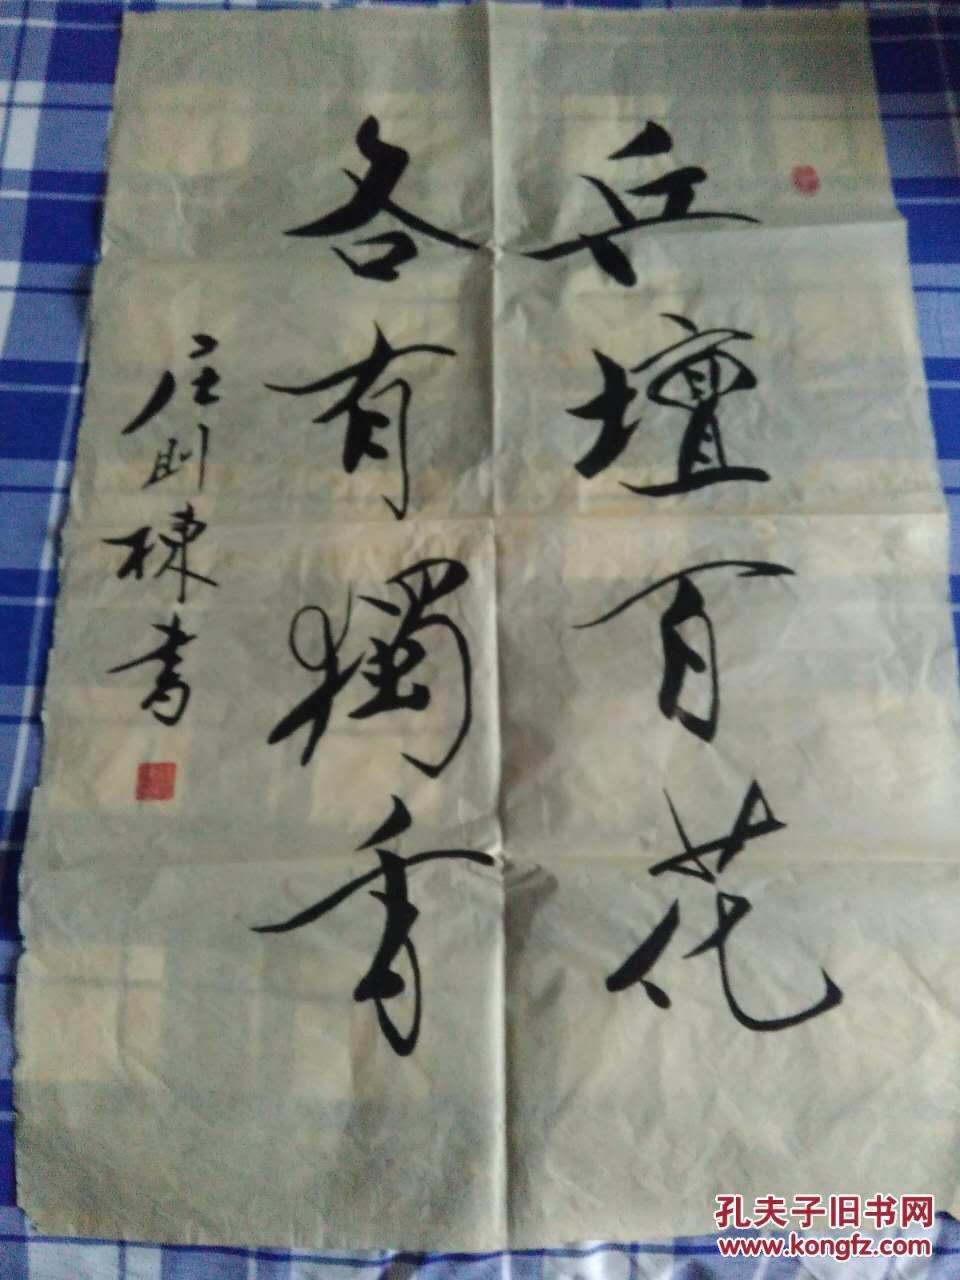 乒壇百花
各有獨香
庄则棟書
孔夫子旧书网
www.kongfz.com